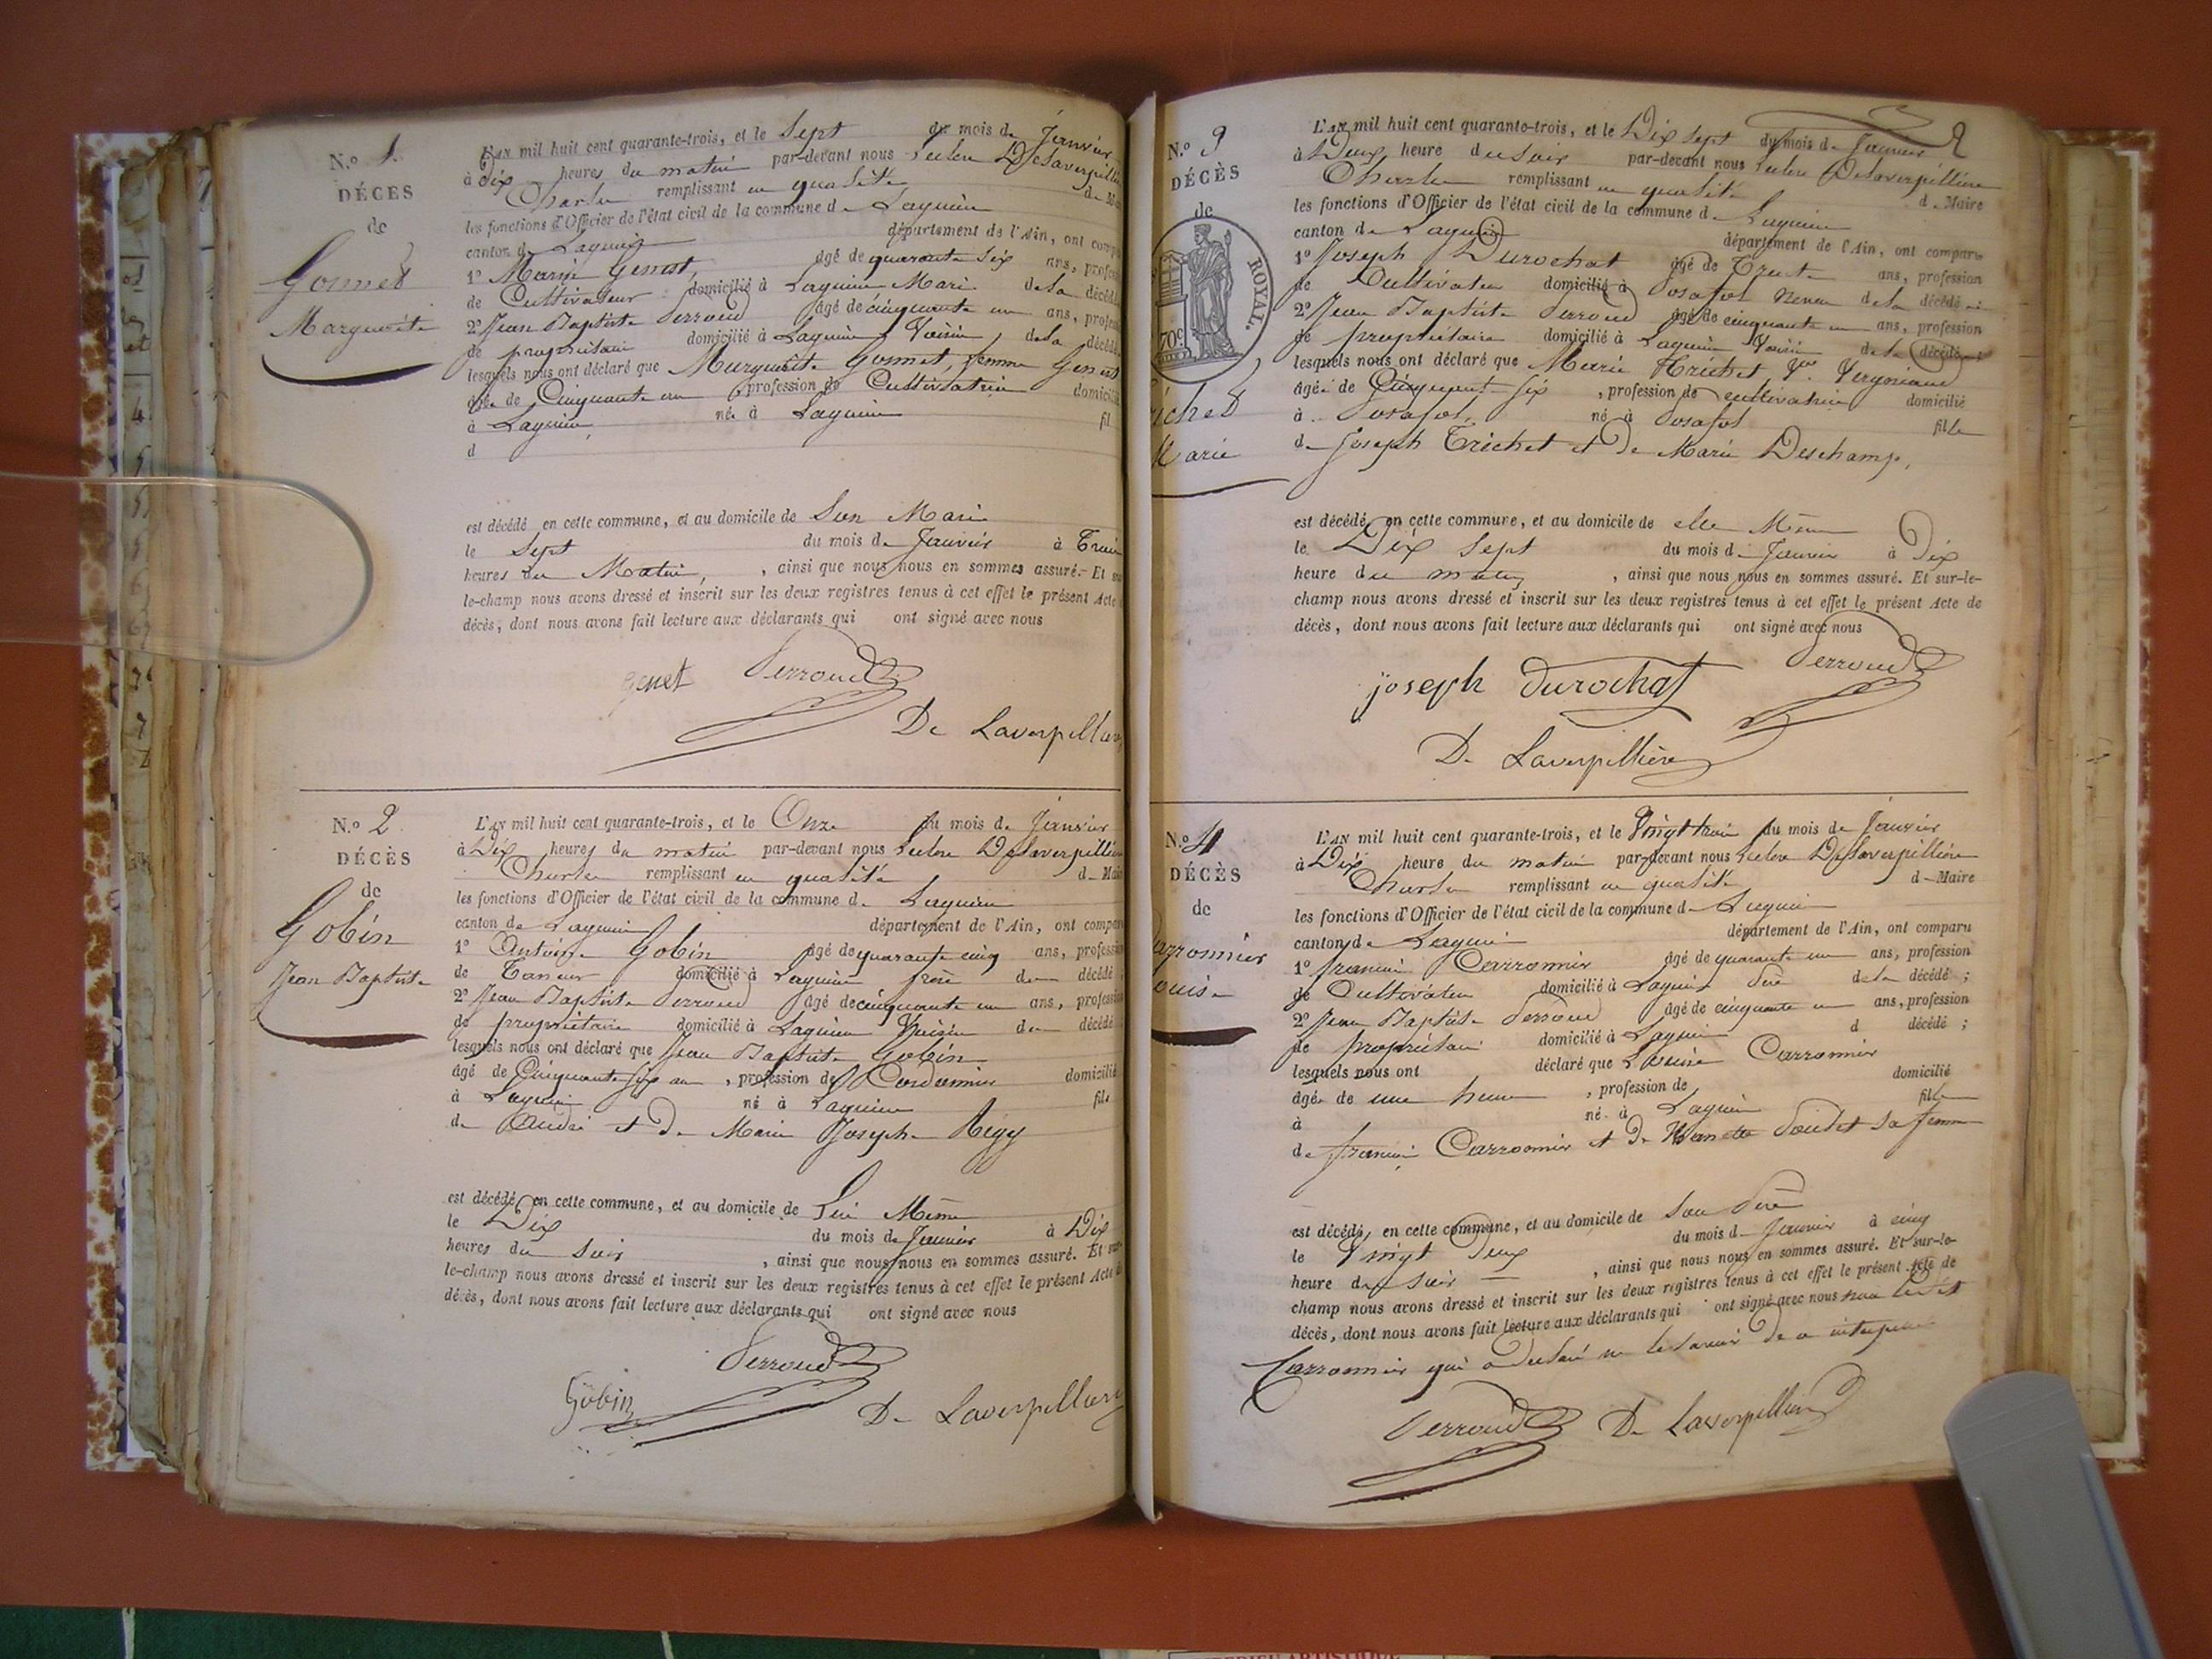 N.º 1.
DÉCES
de
Gomet
Marguerite
L'AN mil huit cent quarante-trois, et le Sept du mois de Janvier
à Dix heures du matin par-devant nous
Charles remplissant en qualité de
les fonctions d'Officier de l'état civil de la commune de Lagnieu
canton de Lagnieu département de l'Ain, ont
1º Marie Genet âgé de quarante Six ans,
de Cultivateur domicilié à Lagnieu Mari de la
2º Jean Baptiste Perroud âgé de cinquante un ans,
de propriétaire domicilié à Lagnieu Voisin de la
lesquels nous ont déclaré que Marguerite Gomet, femme Genet
âgée de Cinquante un profession de Cultivatrice
à Lagnieu, né à Lagnieu fil
d
est décédé en cette commune, et au domicile de Son Mari
le Sept du mois de Janvier à
heures du Matin, , ainsi que nous nous en sommes assuré. Et
le-champ nous avons dressé et inscrit sur les deux registres tenus à cet effet le présent Acte
décès, dont nous avons fait lecture aux déclarants qui ont signé avec nous
genet Perroud
De Laverpillière
N.º 2
DÉCÈS
de
Gobin
Jean Baptiste
L'AN mil huit cent quarante-trois, et le Onze du mois de Janvier
à Dix heures du matin par-devant nous Delaverpillière
Charles remplissant en qualité de
les fonctions d'Officier de l'état civil de la commune de Lagnieu
canton de Lagnieu département de l'Ain, ont
1º Antoine Gobin âgé de quarante cinq ans, profession
de Taneur domicilié à Lagnieu frère du décédé
2º Jean Baptiste Perroud âgé de cinquante un ans, profession
de propriétaire domicilié à Lagnieu Voisin du décédé
lesquels nous ont déclaré que Jean Baptiste Gobin
âgé de Cinquante Six an , profession de Cordonnier domicilié
à Lagnieu né à Lagnieu fils
de André et de Marie Josephe
est décédé en cette commune, et au domicile de Lui Même
le Dix du mois de Janvier à Dix
heures du Soir , ainsi que nous nous en sommes assuré. Et
le-champ nous avons dressé et inscrit sur les deux registres tenus à cet effet le présent Acte
décès, dont nous avons fait lecture aux déclarants qui ont signé avec nous
Perroud
Gobin
De Laverpillière
2
N.º 3
DÉCÈS
de
ROYAL.
70c
Marie
L'AN mil huit cent quarante-trois, et le Dix Sept du mois de Janvier
à Deux heure du Soir par-devant nous Delaverpillière
Charles remplissant en qualité de Maire
les fonctions d'Officier de l'état civil de la commune de Lagnieu
canton de Lagnieu département de l'Ain, ont comparu
1º Joseph Durochat âgé de Trente ans, profession
de Cultivateur domicilié à Posafol neveu de la décédée
2º Jean Baptiste Perroud âgé de cinquante un ans, profession
de propriétaire domicilié à Lagnieu Voisin de la décédée ;
lesquels nous ont déclaré que Marie Trichet Ve
âgée de Cinquante Six , profession de cultivatrice domicilié
à Posafol, né à Posafol fille
de Joseph Trichet et de Marie Deschamp,
est décédé en cette commune, et au domicile de elle Même
le Dix Sept du mois de Janvier à Dix
heure du matin , ainsi que nous nous en sommes assuré. Et sur-le-
champ nous avons dressé et inscrit sur les deux registres tenus à cet effet le présent Acte de
décès, dont nous avons fait lecture aux déclarants qui ont signé avec nous
joseph durochat Perroud
De Laverpillière
N.º 4
DÉCÈS
de
L'AN mil huit cent quarante-trois, et le Vingt trois du mois de Janvier
à Dix heure du matin par-devant nous Delaverpillière
Charles remplissant en qualité de Maire
les fonctions d'Officier de l'état civil de la commune de Lagnieu
canton de Lagnieu département de l'Ain, ont comparu
1º francois Carronnier âgé de quarante un ans, profession
de Cultivateur domicilié à Lagnieu Père de la décédé ;
2º Jean Baptiste Perroud âgé de cinquante un ans, profession
de propriétaire domicilié à Lagnieu d décédé ;
lesquels nous ont déclaré que Louise Carronnier
âgée de une heure , profession de domicilié
à né à Lagnieu fille
de francois Carronnier et de sa femme
est décédé, en cette commune, et au domicile de Son Père
le Vingt Deux du mois de Janvier à cinq
heure du Soir — , ainsi que nous nous en sommes assuré. Et sur-le-
champ nous avons dressé et inscrit sur les deux registres tenus à cet effet le présent Acte de
décès, dont nous avons fait lecture aux déclarants qui ont signé avec nous non ledit
Carronnier qui a déclaré ne le savoir de ce
Perroud De Laverpillière